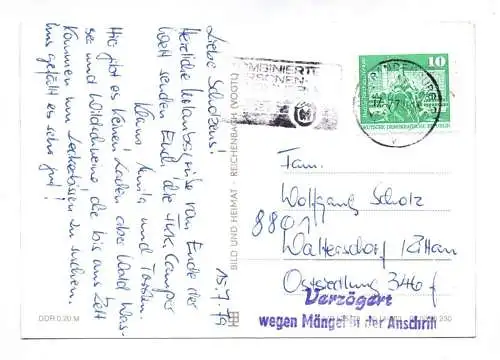 15.7.79
Liebe Scholzens!
Herzliche Urlaubsgrüße vom Ende der
Welt senden Euch die FKK Camper
Klaus, und Torsten.
Hier gibt es keinen Laden aber Wald Was-
ser und Wildschweine, die bis ans Zelt
kommen um Leckerbissen zu suchen.
Uns gefällt es sehr gut!
DDR 0,20 M
BILD UND HEIMAT REICHENBACH (VOGTL)
KOMBINIERTE
PERSONEN-
10
DEUTSCHE DEMOKRATISCHE REPUBLIK
Fam.
Wolfgang Scholz
8801
Waltersdorf Zittau
Ostsiedlung 346f
Verzögert
wegen Mängel in der Anschrift